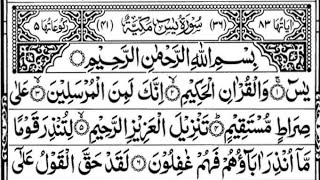 اٰیَاتُهَا ۸۳ (۳۶) سُوْرَةُ یٰسٓ مَكِّیَّةٌ (۴۱) رُكُوْعَاتُهَا ۵
بِسْمِ اللّٰهِ الرَّحْمٰنِ الرَّحِیْمِ
یٰسٓ ۱ وَالْقُرْاٰنِ الْحَكِیْمِ ۲ اِنَّكَ لَمِنَ الْمُرْسَلِیْنَ ۳ عَلٰی
صِرَاطٍ مُّسْتَقِیْمٍ ۴ تَنْزِیْلَ الْعَزِیْزِ الرَّحِیْمِ ۵ لِتُنْذِرَ قَوْمًا
مَّاۤ اُنْذِرَ اٰبَآؤُهُمْ فَهُمْ غٰفِلُوْنَ ۶ لَقَدْ حَقَّ الْقَوْلُ عَلٰۤی